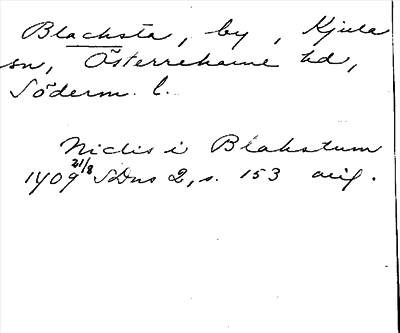 Blacksta, by, Kjula
sn, Österrekarne hd,
Söderm. l.
Niclis i Blakstum
1409 21/8 SDns 2, s. 153 orig.